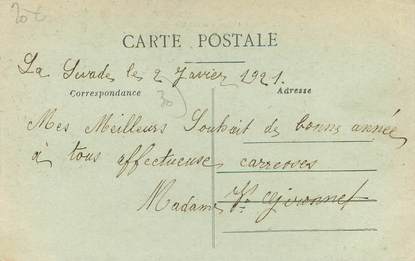 CARTE POSTALE
La le 2 Janvier 1921.
Correspondance Adresse
30
Mes Meilleurs Souhait de bonne année
à tous affectueuse carresses
Madame